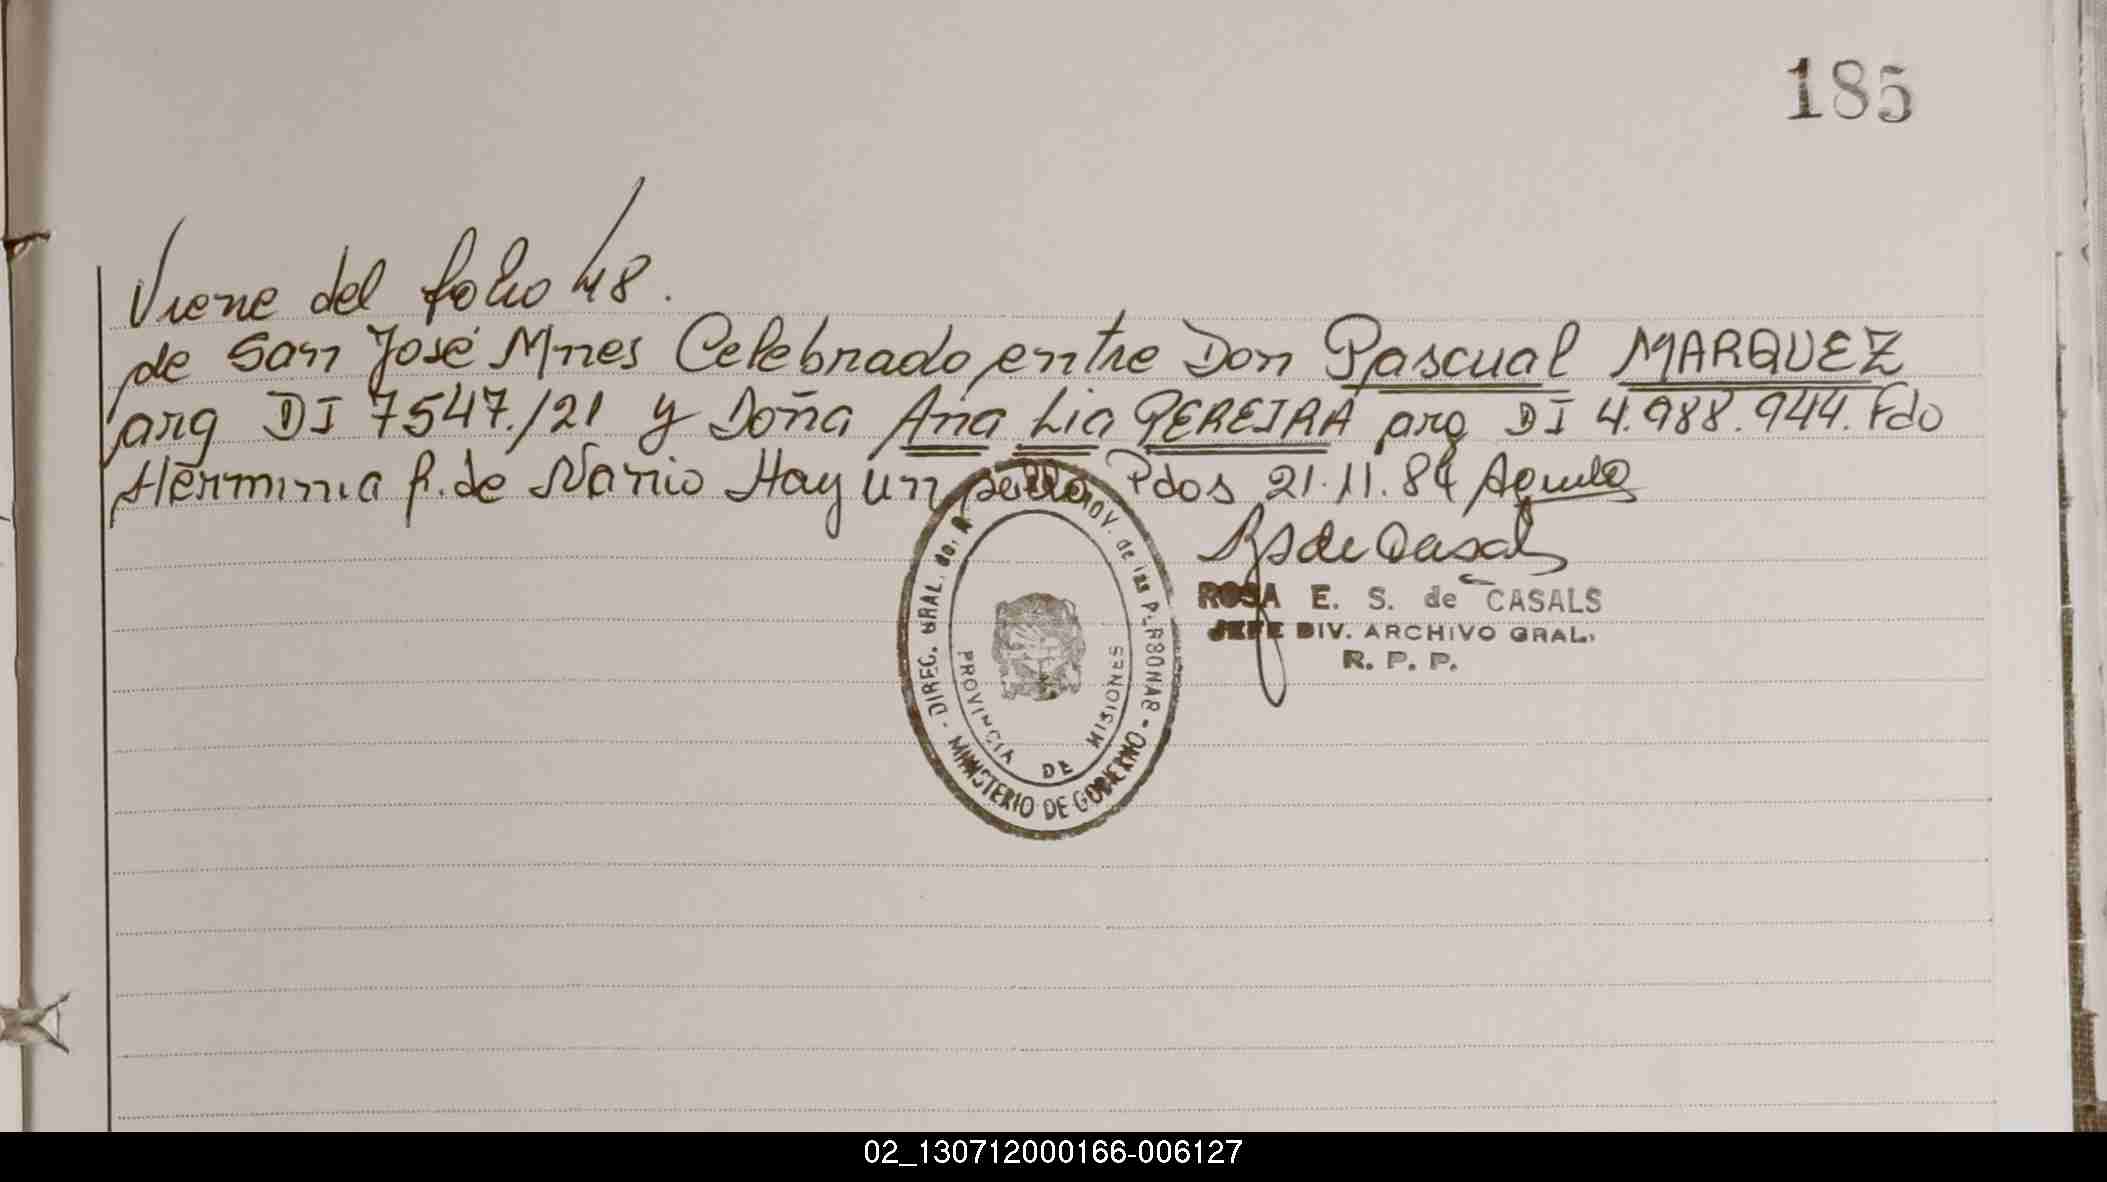 185
Viene del folio 48.
de San José Mnes Celebrado entre Don Pascual MARQUEZ
arg DI 7547./21 y Doña Ana Lia PEREIRA arg DI 4.988.944. Fdo
Herminia R. de Nario Hay un sello Pdos 21.11.84
ROSA E. S. de CASALS
JEFE DIV. ARCHIVO GRAL.
R. P. P.
DIREC. GRAL. de las PERSONAS - MINISTERIO DE GOBIERNO -
PROVINCIA DE MISIONES
02_130712000166-006127